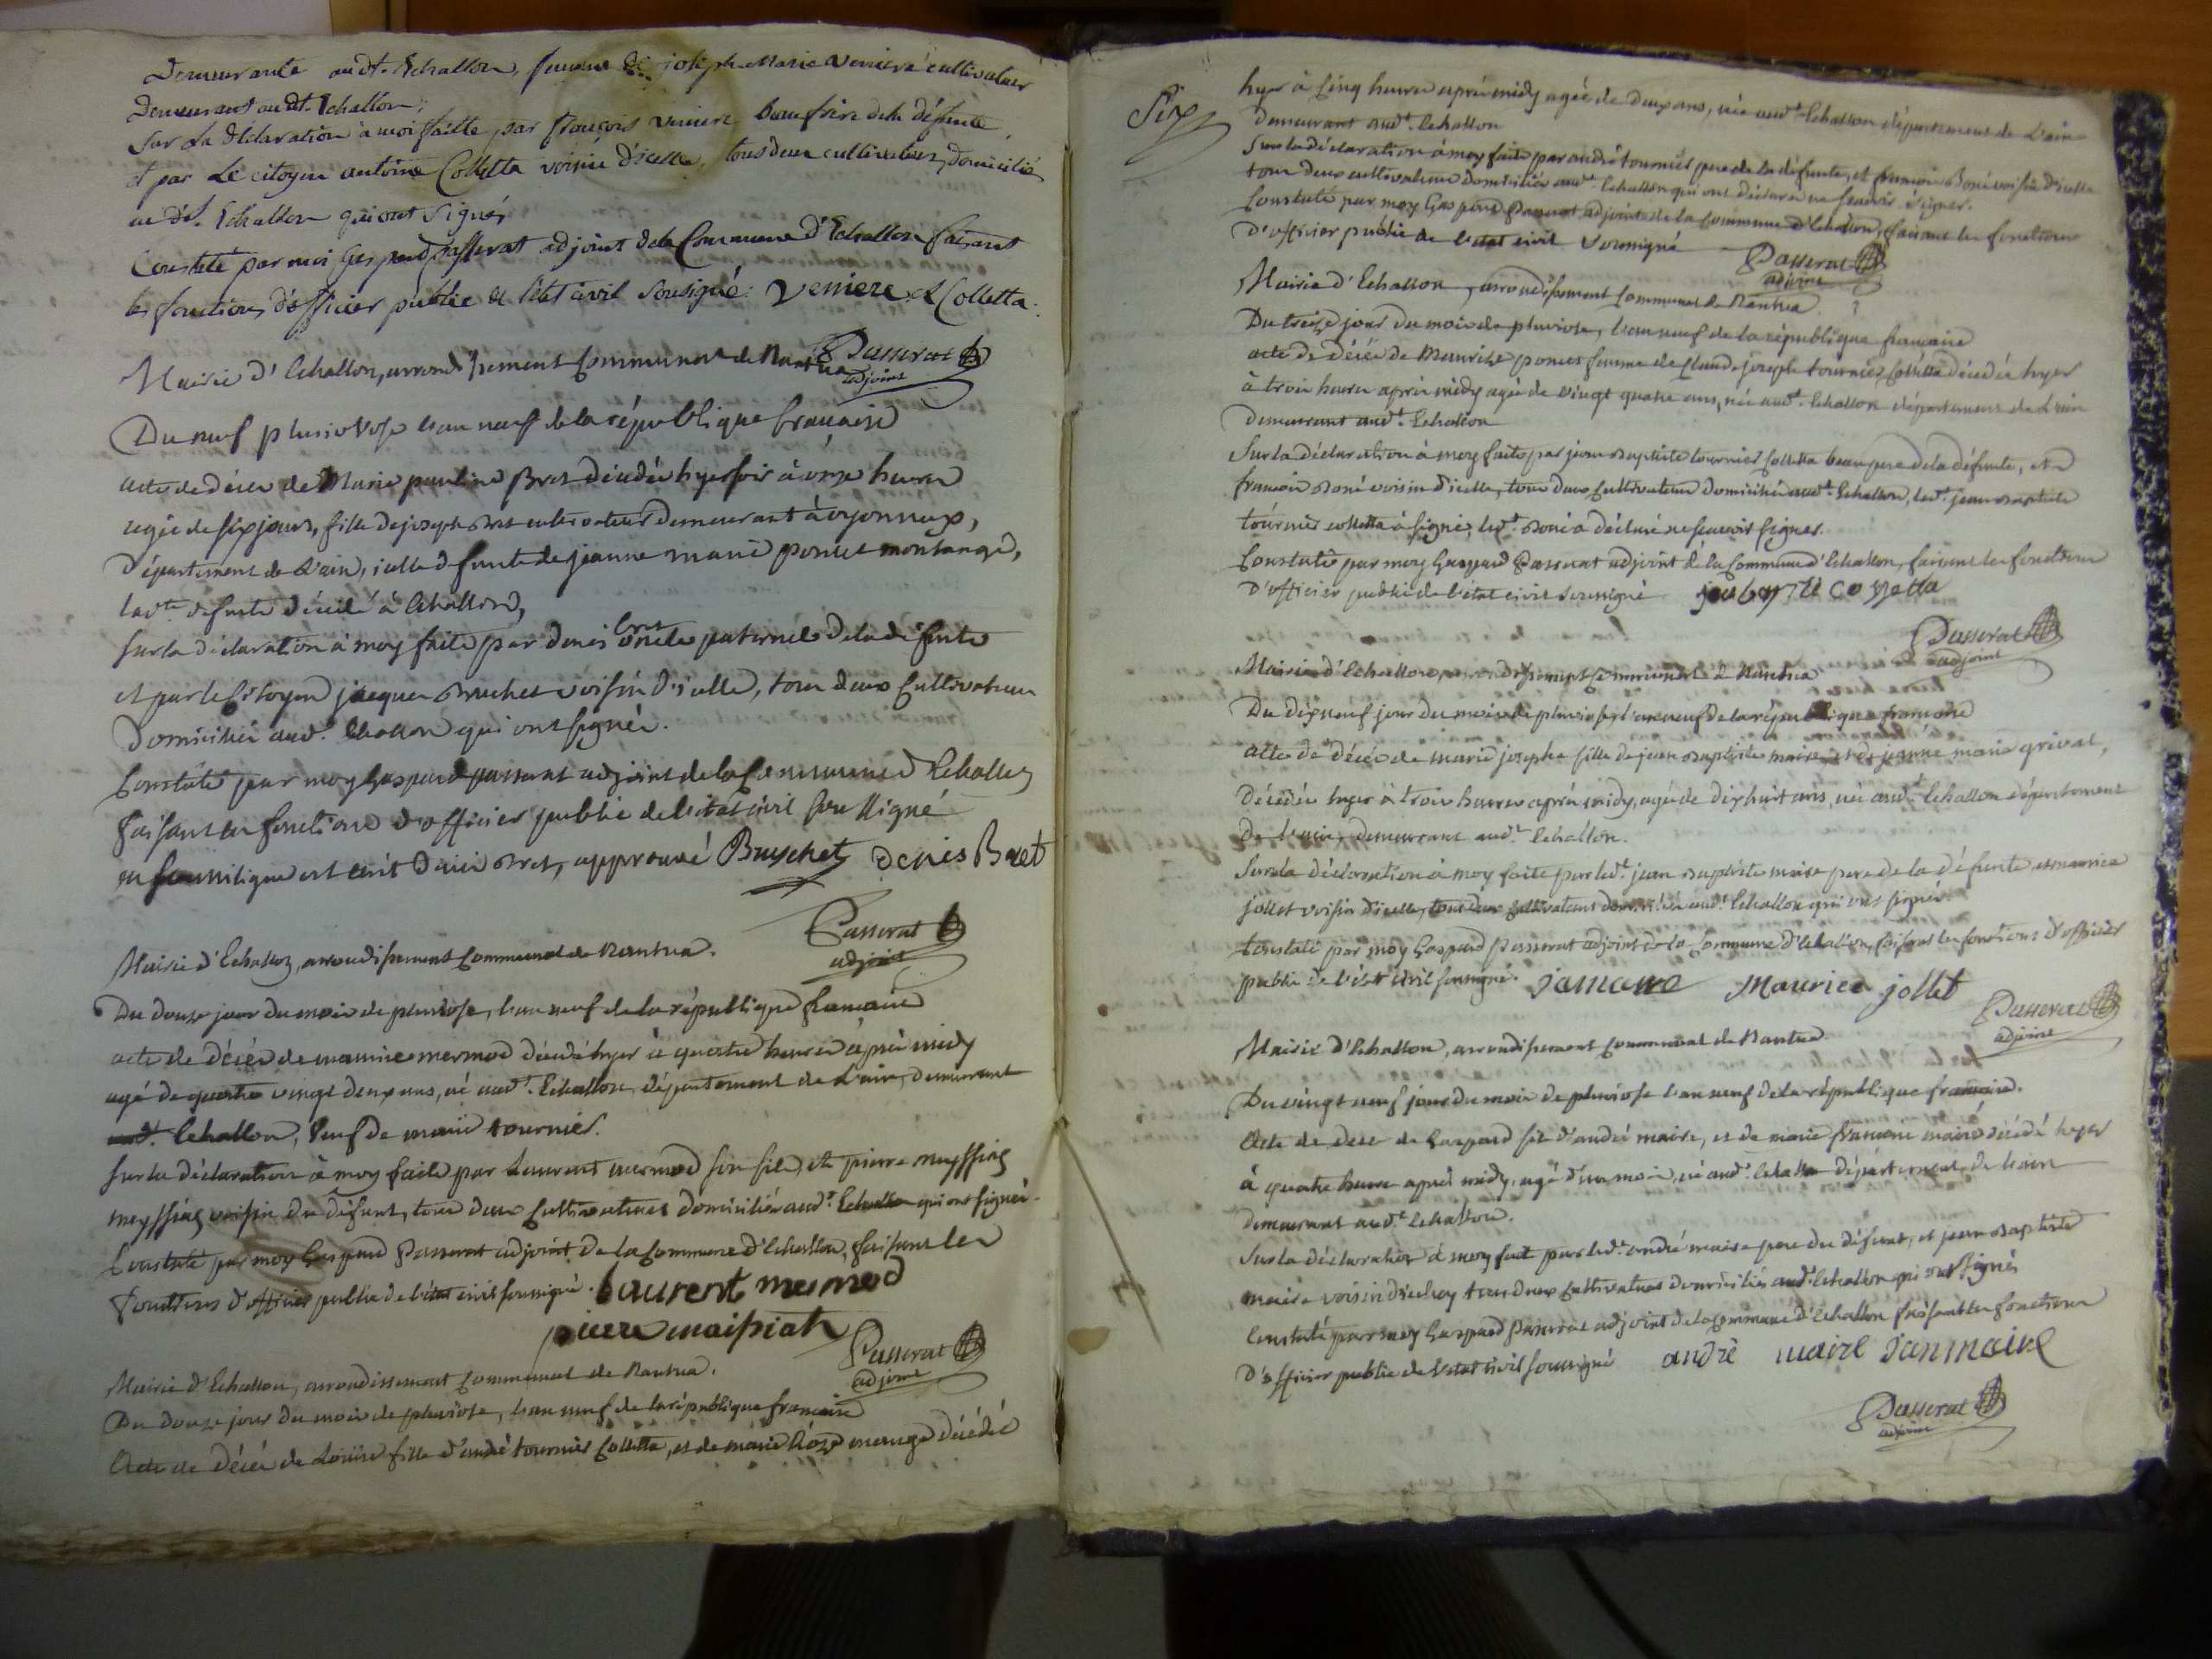 Demeurante audt. Echallon, femme de joseph Marie Veniere cultivateur
Demeurant au dt. Echallon;
Sur La declaration à moi faitte par françois veniere beaufrere de la défunte
et par Le citoyen antoine Colletta voisin d'icelle, tous deux cultivateurs, domicilié
au dt. Echallon qui ont Signés
Constaté par moi Gaspard Passerat adjoint de la Commune d'Echallon faisant
les fonctions d'officier public de l'état civil Sousigné: Veniere A Colletta.
Passerat
adjoint
Mairie d'Echallon, arrondissement Communal de Nantua
Du neuf pluviose l'an neuf de la république française
acte de décés de Marie pauline Bret décédée hyer soir à onze heures
agée de six jours, fille de joseph Bret cultivateur demeurant à oyonnax,
Département de L'ain, icelle defunte de jeanne marie poncet montange,
lad.te defunte décédé à Echallon,
Sur la déclaration à moy faite par denis bret oncle paternel de la défunte
et par le Citoyen jacques Bruchet voisin d'icelle, tous deux Cultivateurs
Domiciliés aud.t Echallon qui ont signés.
Constaté par moy Gaspard passerat adjoint de la Commune d'Echallon
faisant les fonctions d'officier public de l'état civil soussigné
est écrit Denis Bret, approuvé Bruychet Denis Bret
Passerat
adjoint
Mairie d'Echallon, arrondissement Communal de Nantua.
Du douze jour du mois de pluviose, l'an neuf de la république francaise
acte de décés de maurice mermod décédé hyer à quatre heures après midy
agé de quatre vingt deux ans, né aud.t Echallon, département de L'ain, demeurant
aud.t Echallon, Veuf de marie tournier.
Sur la déclaration à moy faite par Laurent mermod son fils, et pierre meyssias
meyssias voisin du défunt, tous deux Cultivateurs domiciliés aud.t Echallon qui ont signés.
Constaté par moy Gaspard Passerat adjoint de la Commune d'Echallon, faisant les
fonctions d'officier public de l'état civil soussigné. Laurent mermod
piere maisiah
Passerat
adjoint
Mairie d'Echallon, arrondissement Communal de Nantua.
Du douze jour du mois de pluviose, l'an neuf de la république francaise
Acte de décés de Louise fille d'andré tournier Colletta, et de marie Roze décédée
Six
hyer à Cinq heures après midy agée de deux ans, née aud.t Echallon département de L'ain
demeurant aud.t Echallon
Sur la déclaration à moy faite par andré tournier pere de la défunte, et francois Boné voisin d'icelle
tous deux cultivateurs domiciliés aud.t Echallon qui ont déclaré ne scavoir signer.
Constaté par moy Gaspard Passerat adjoint de la Commune d'Echallon, faisant les fonctions
D'officier public de l'état civil soussigné
Passerat
adjoint
Mairie d'Echallon, arrondissement Communal de Nantua
Du treize jour du mois de pluviose, l'an neuf de la république française
acte de décés de Maurize poncet femme de Claude joseph tournier Colletta décédée hyer
à trois heures après midy agée de vingt quatre ans, née aud.t Echallon département de L'ain
demeurant aud.t Echallon
Sur la déclaration à moy faite par jean Baptiste tournier Colletta beau pere de la défunte, et
francois Boné voisin d'icelle, tous deux Cultivateurs domiciliés aud.t Echallon, led.t jean Baptiste
tournier colletta à signé, led.t Boné a déclaré ne scavoir signer.
Constaté par moy Gaspard Passerat adjoint de la Commune d'Echallon, faisant les fonctions
D'officier public de l'état civil soussigné
Passerat
adjoint
Mairie d'Echallon, arrondissement Communal de Nantua
Du dixneuf jour du mois de pluviose, l'an neuf de la république française
acte de décés de marie josephe fille de jean Baptiste maire et de jeanne marie grivat,
Décédée hyer à trois heures après midy, agée de dixhuit ans, née aud.t Echallon département
De L'ain, demeurant aud.t Echallon.
Sur la déclaration à moy faite par led.t jean Baptiste maire pere de la défunte et maurice
jollet voisin d'icelle, tous deux Cultivateurs domiciliés aud.t Echallon qui ont signés.
Constaté par moy Gaspard Passerat adjoint de la Commune d'Echallon, faisant les fonctions d'officier
public de l'état civil soussigné. Janmaire Maurice jollet
Passerat
adjoint
Mairie d'Echallon, arrondissement Communal de Nantua.
Du vingt neuf jour du mois de pluviose l'an neuf de la république francaise.
Acte de décé de Gaspard fils d'andré maire, et de marie francoise maire décédé hyer
à quatre heures après midy, agé d'un mois, né aud.t Echallon département de L'ain
demeurant aud.t Echallon.
Sur la déclaration à moy faite par led.t andré maire pere du défunt, et jean Baptiste
maire voisin d'icluy tous deux Cultivateurs domiciliés aud.t Echallon qui ont signés
Constaté par moy Gaspard Passerat adjoint de la Commune d'Echallon faisant les fonctions
D'officier public de l'état civil soussigné andré maire Janmaire
Passerat
adjoint